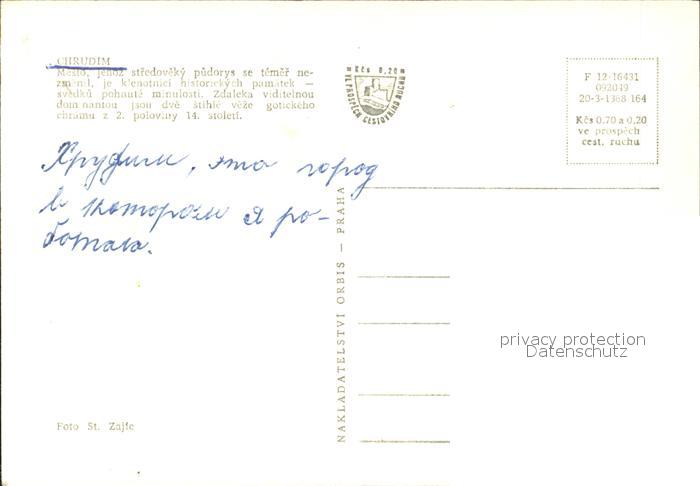 CHRUDIM
Město, jehož středověký půdorys se téměř ne-
změnil, je klenotnicí historických památek —
svědků pohnuté minulosti. Zdaleka viditelnou
dominantou jsou dvě štíhlé věže gotického
chrámu z 2. poloviny 14. století.
Kčs 0,20
VE PROSPĚCH CESTOVNÍHO RUCHU
F 12-16431
092049
20-3-1368 164
Kčs 0,70 a 0,20
ve prospěch
cest. ruchu
Хрудим, это город
в котором я ро-
ботала.
NAKLADATELSTVÍ ORBIS — PRAHA
privacy protection
Datenschutz
Foto St. Zajíc